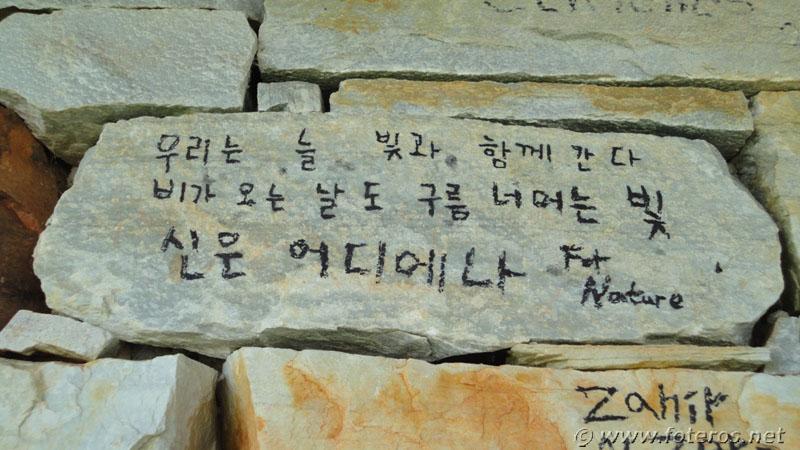 우리는 늘 빛과 함께 간다
비가 오는 날도 구름 너머는 빛
신은 어디에나 For
Nature
Zahir
© www.foteros.net